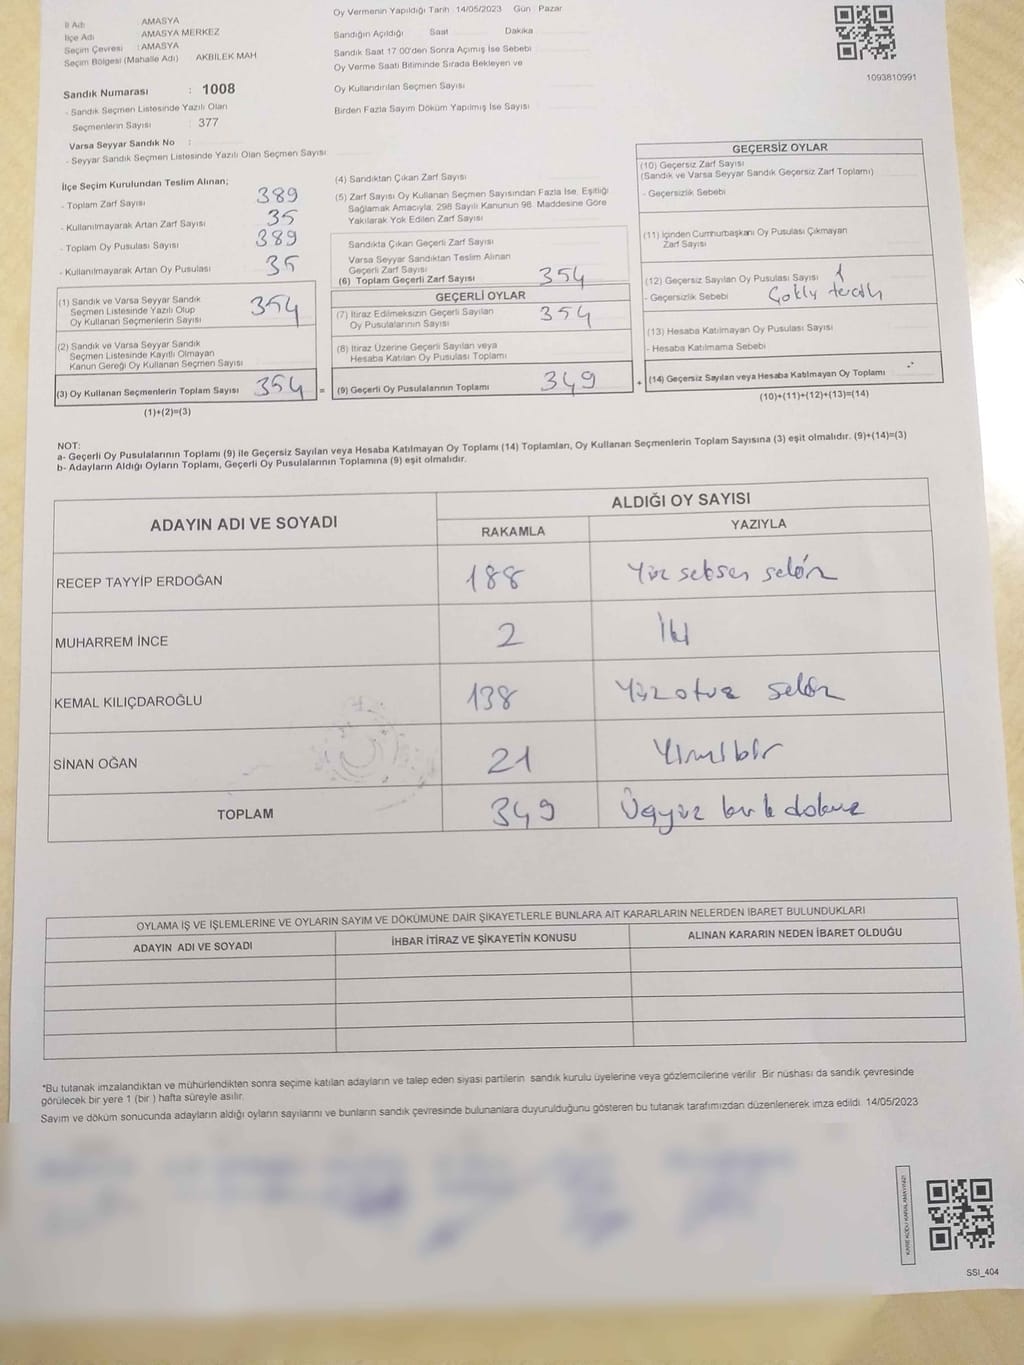 Oy Vermenin Yapıldığı Tarih :14/05/2023 Gün : Pazar
İl Adı AMASYA
İlçe Adı AMASYA MERKEZ
Seçim Çevresi : AMASYA
Seçim Bölgesi (Mahalle Adı) AKBİLEK MAH
Sandığın Açıldığı Saat Dakika
Sandık Saat 17:00'den Sonra Açımış İse Sebebi
Oy Verme Saati Bitiminde Sırada Bekleyen ve
Oy Kullandırılan Seçmen Sayısı
Birden Fazla Sayım Döküm Yapılmış İse Sayısı
1093810991
Sandık Numarası : 1008
- Sandık Seçmen Listesinde Yazılı Olan
Seçmenlerin Sayısı : 377
Varsa Seyyar Sandık No :
- Seyyar Sandık Seçmen Listesinde Yazılı Olan Seçmen Sayısı
İlçe Seçim Kurulundan Teslim Alınan;
- Toplam Zarf Sayısı 389
- Kullanılmayarak Artan Zarf Sayısı 35
- Toplam Oy Pusulası Sayısı 389
- Kullanılmayarak Artan Oy Pusulası 35
(1) Sandık ve Varsa Seyyar Sandık
Seçmen Listesinde Yazılı Olup
Oy Kullanan Seçmenlerin Sayısı 354
(2) Sandık ve Varsa Seyyar Sandık
Seçmen Listesinde Kayıtlı Olmayan
Kanun Gereği Oy Kullanan Seçmen Sayısı
(3) Oy Kullanan Seçmenlerin Toplam Sayısı 354 =
(1)+(2)=(3)
(4) Sandıktan Çıkan Zarf Sayısı
(5) Zarf Sayısı Oy Kullanan Seçmen Sayısından Fazla İse, Eşitliği
Sağlamak Amacıyla, 298 Sayılı Kanunun 98. Maddesine Göre
Yakılarak Yok Edilen Zarf Sayısı
Sandıkta Çıkan Geçerli Zarf Sayısı
Varsa Seyyar Sandıktan Teslim Alınan
Geçerli Zarf Sayısı
(6) Toplam Geçerli Zarf Sayısı 354
GEÇERLİ OYLAR
(7) İtiraz Edilmeksizin Geçerli Sayılan
Oy Pusulalarının Sayısı 354
(8) İtiraz Üzerine Geçerli Sayılan veya
Hesaba Katılan Oy Pusulası Toplamı
(9) Geçerli Oy Pusulalarının Toplamı 349 +
GEÇERSİZ OYLAR
(10) Geçersiz Zarf Sayısı
(Sandık ve Varsa Seyyar Sandık Geçersiz Zarf Toplamı)
- Geçersizlik Sebebi
(11) İçinden Cumhurbaşkanı Oy Pusulası Çıkmayan
Zarf Sayısı
(12) Geçersiz Sayılan Oy Pusulası Sayısı 1
- Geçersizlik Sebebi Çoklu tercih
(13) Hesaba Katılmayan Oy Pusulası Sayısı
- Hesaba Katılmama Sebebi
(14) Geçersiz Sayılan veya Hesaba Katılmayan Oy Toplamı
(10)+(11)+(12)+(13)=(14)
NOT:
a- Geçerli Oy Pusulalarının Toplamı (9) ile Geçersiz Sayılan veya Hesaba Katılmayan Oy Toplamı (14) Toplamları, Oy Kullanan Seçmenlerin Toplam Sayısına (3) eşit olmalıdır. (9)+(14)=(3)
b- Adayların Aldığı Oyların Toplamı, Geçerli Oy Pusulalarının Toplamına (9) eşit olmalıdır.
ADAYIN ADI VE SOYADI ALDIĞI OY SAYISI
RAKAMLA YAZIYLA
RECEP TAYYİP ERDOĞAN 188 Yüz seksen sekiz
MUHARREM İNCE 2 İki
KEMAL KILIÇDAROĞLU 138 Yüz otuz sekiz
SİNAN OĞAN 21 Yirmi bir
TOPLAM 349 Üçyüz kırk dokuz
OYLAMA İŞ VE İŞLEMLERİNE VE OYLARIN SAYIM VE DÖKÜMÜNE DAİR ŞİKAYETLERLE BUNLARA AİT KARARLARIN NELERDEN İBARET BULUNDUKLARI
ADAYIN ADI VE SOYADI İHBAR İTİRAZ VE ŞİKAYETİN KONUSU ALINAN KARARIN NEDEN İBARET OLDUĞU
*Bu tutanak imzalandıktan ve mühürlendikten sonra seçime katılan adayların ve talep eden siyasi partilerin sandık kurulu üyelerine veya gözlemcilerine verilir. Bir nüshası da sandık çevresinde
görülecek bir yere 1 (bir ) hafta süreyle asılır.
Sayım ve döküm sonucunda adayların aldığı oyların sayılarını ve bunların sandık çevresinde bulunanlara duyurulduğunu gösteren bu tutanak tarafımızdan düzenlenerek imza edildi. 14/05/2023
KARE KODU KARALAMAYINIZ!
SSI_404